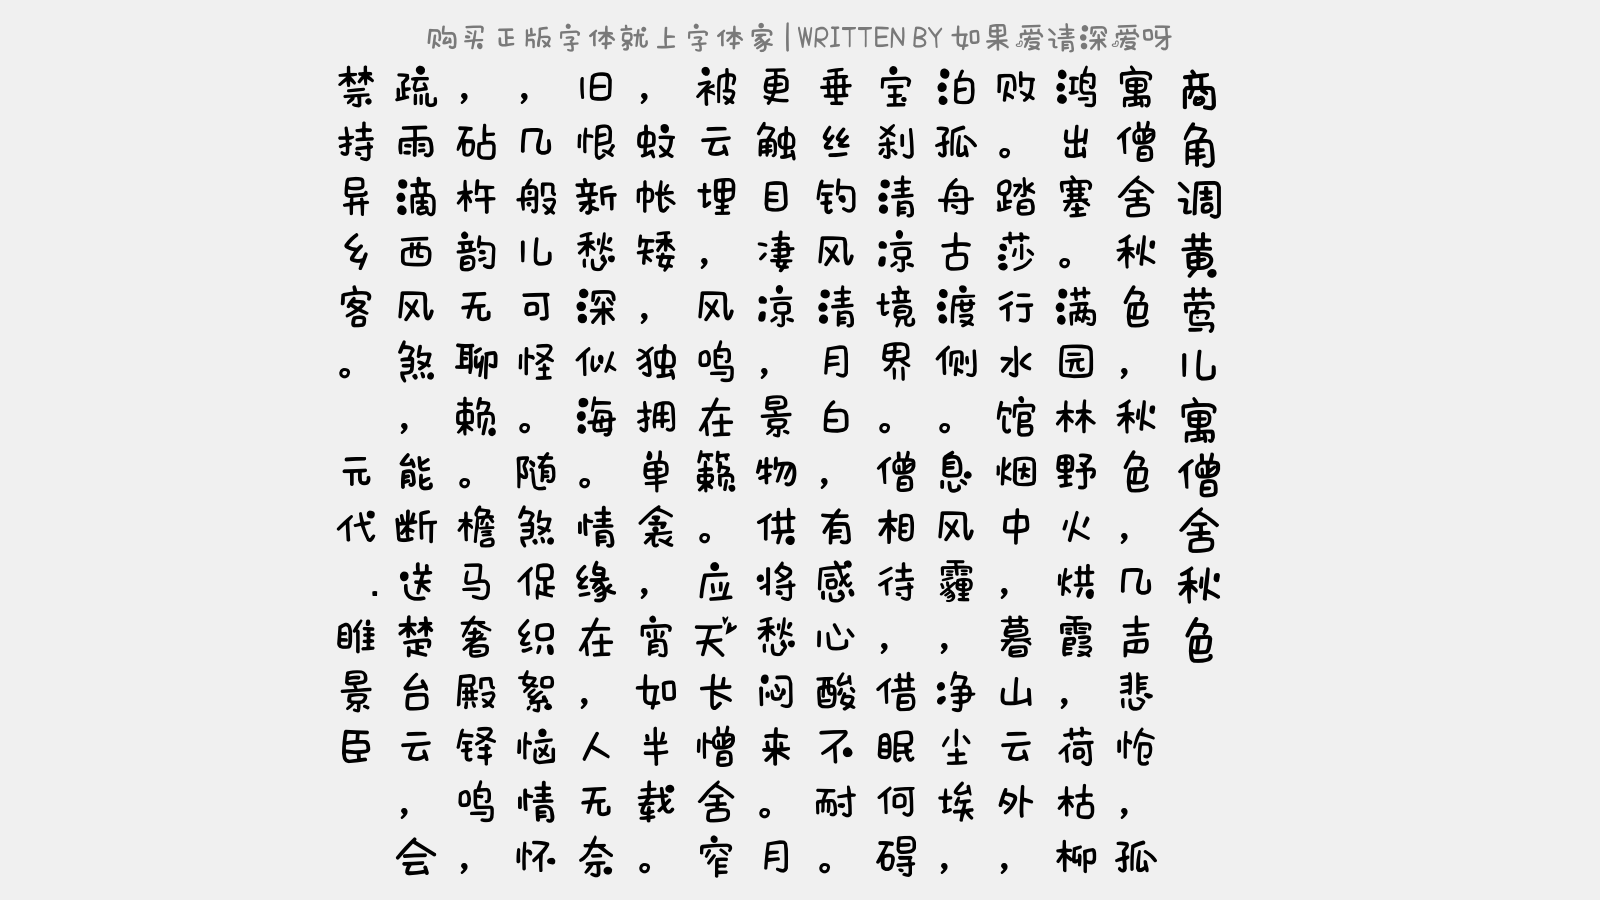 购买正版字体就上字体家|WRITTEN BY 如果爱请深爱呀
商角调黄莺儿寓僧舍秋色
寓僧舍秋色，秋色，几声悲怆，孤
鸿出塞。满园林野火烘霞，荷枯柳
败。踏莎行水馆烟中，暮山云外，
泊孤舟古渡侧。息风霾，净尘埃，
宝刹清凉境界。僧相待，借眠何碍
垂丝钓风清月白，有感心酸不耐。
更触目凄凉，景物供将愁闷来。月
被云埋，风鸣在籁。应天长憎舍窄
，蚊帐矮，独拥单衾，宵如半载。
旧恨新愁深似海。情缘在，人无奈
，几般儿可怪。随煞促织絮恼情怀
，砧杵韵无聊赖。檐马奢殿铎鸣，
疏雨滴西风煞，能断送楚台云，会
禁持异乡客。 元代.睢景臣